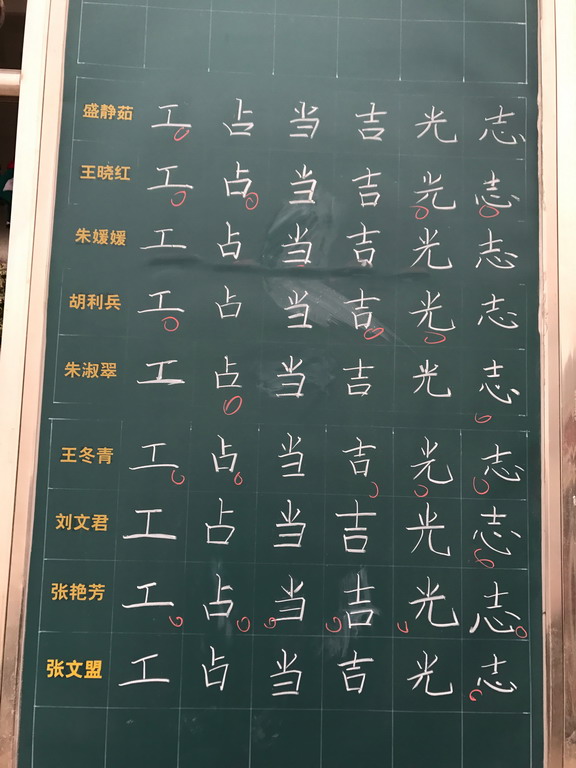 盛静茹 工 占 当 吉 光 志
王晓红 工 占 当 吉 光 志
朱媛媛 工 占 当 吉 光 志
胡利兵 工 占 当 吉 光 志
朱淑翠 工 占 当 吉 光 志
王冬青 工 占 当 吉 光 志
刘文君 工 占 当 吉 光 志
张艳芳 工 占 当 吉 光 志
张文盟 工 占 当 吉 光 志